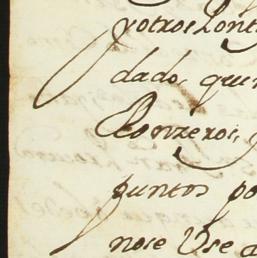 y otros Cont
dado, que
Conzexos,
puntos po
nose Use a